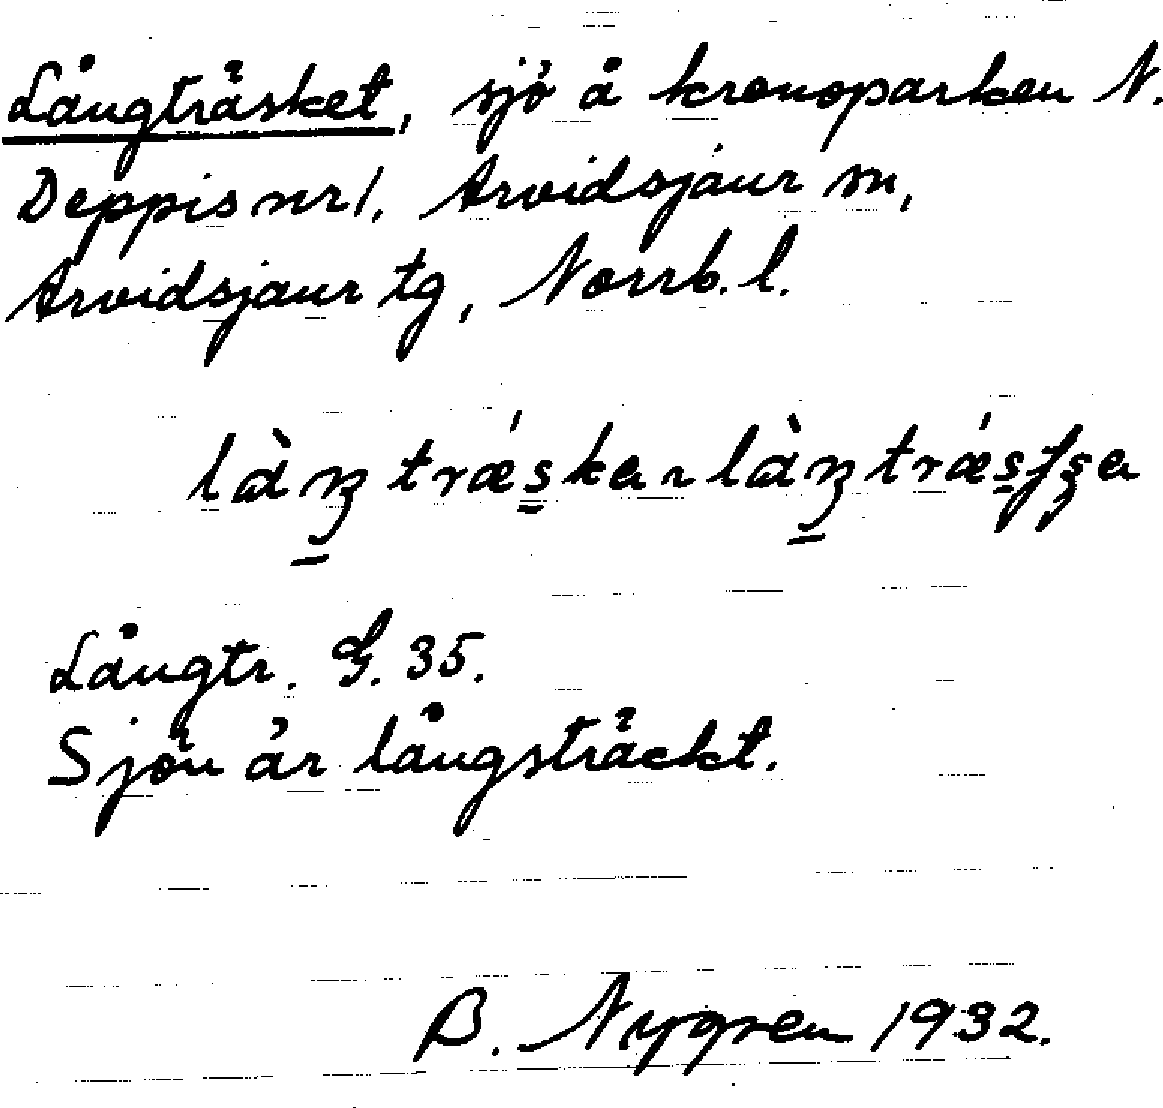 Långträsket, sjö å kronoparken N.
Deppis nr 1, Arvidsjaur sn,
Arvidsjaur tg, Norrb. l.
Långtr. G. 35.
Sjön är långsträckt.
B. Nygren 1932.